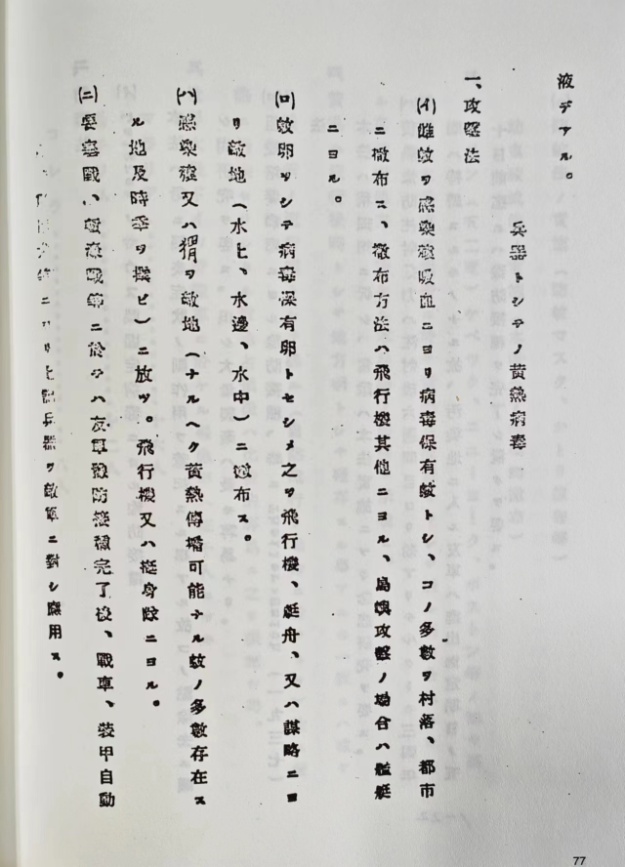 液デアル。
兵器トシテノ黄熱病毒
一、攻撃法
(イ) 雌蚊ヲ感染吸血ニヨリ病毒保有蚊トシ、コノ多数ヲ村落、都市
ニ撒布ス、撒布方法ハ飛行機其他ニヨル、島嶼攻撃ノ場合ハ艦艇
ニヨル。
(ロ) 蚊卵ヲシテ病毒保有卵トセシメ之ヲ飛行機、艇舟、又ハ謀略ニヨ
リ敵地(水上、水邊、水中)ニ撒布ス。
(ハ) 感染猿又ハ猬ヲ敵地(ナルヘク黄熱傳播可能ナル蚊ノ多数存在ス
ル地及時季ヲ撰ビ)ニ放ツ。飛行機又ハ挺身隊ニヨル。
(ニ) 要塞戰、等ニ於テハ友軍豫防接種完了後、戰車、装甲自動
ニヨリ上記兵器ヲ敵軍ニ對シ應用ス。
77